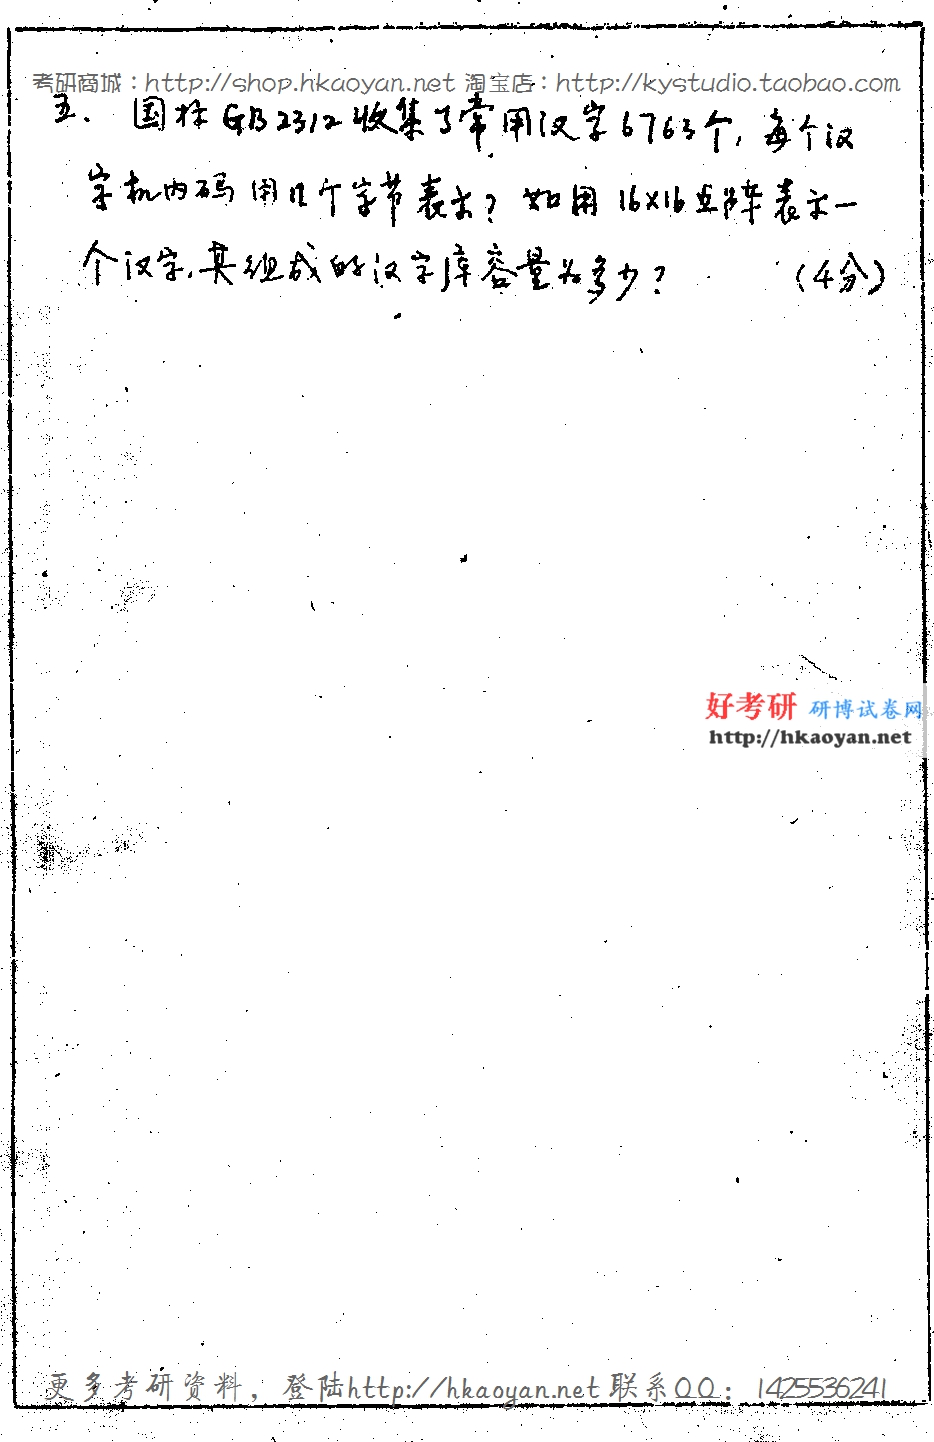 考研商城：http://shop.hkaoyan.net 淘宝店：http://kystudio.taobao.com
五. 国标GB2312收集了常用汉字6763个, 每个汉
字机内码用几个字节表示? 如用16×16点阵表示一
个汉字, 其组成的汉字库容量为多少? (4分)
好考研 研博试卷网
http://hkaoyan.net
更多考研资料，登陆http://hkaoyan.net 联系QQ：1425536241